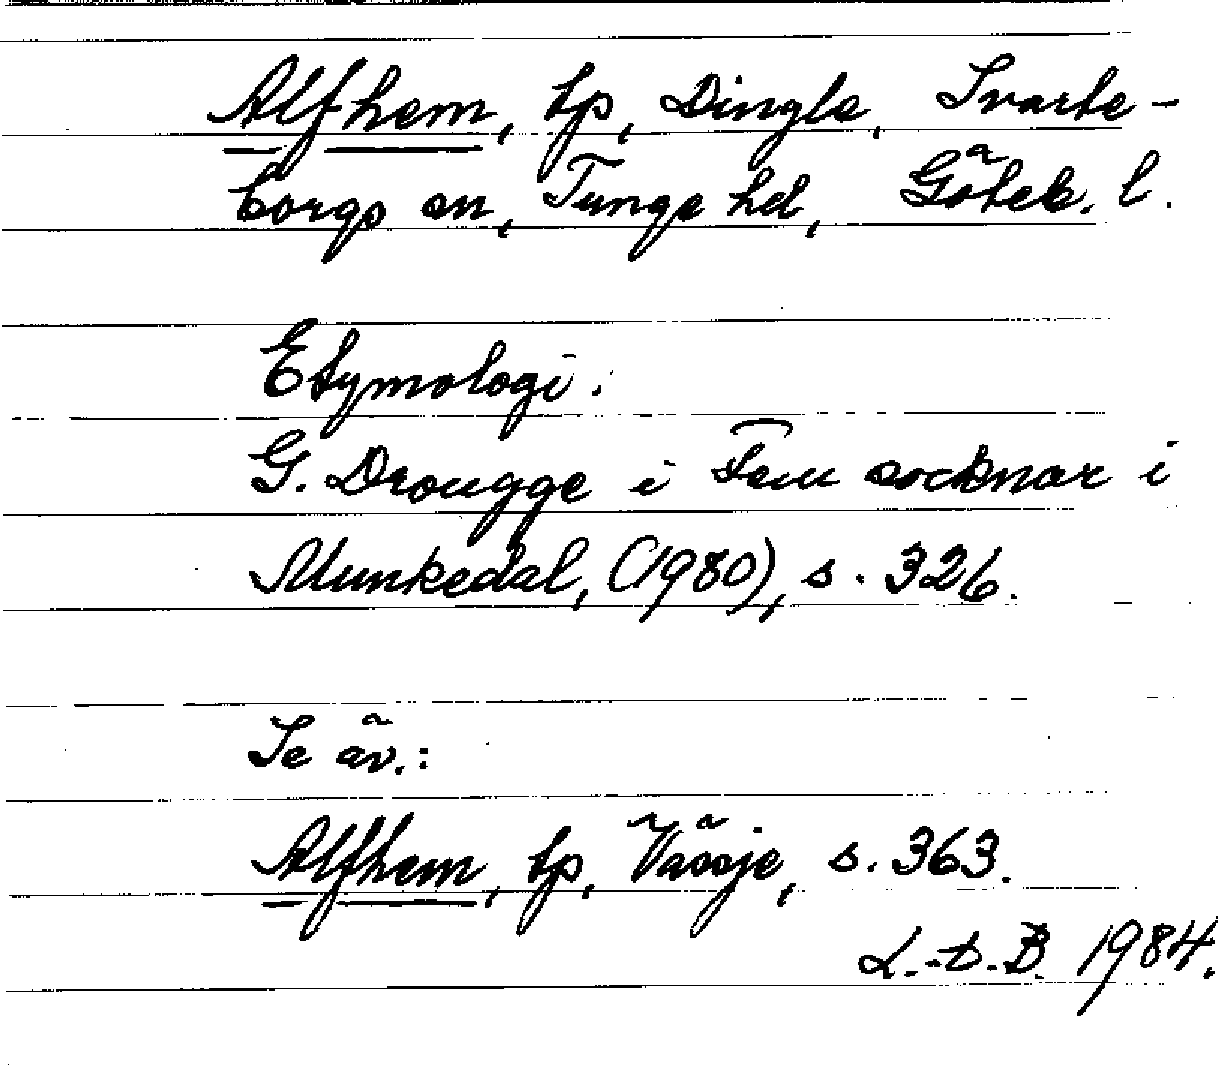 Alfhem, lp, Dingle, Svarte-
borgs sn, Tunge hd, Göteb. l.
Etymologi:
G. Drougge i Fem socknar i
Munkedal, (1980), s. 326.
Se äv.:
Alfhem, lp, Vässje, s. 363.
L.-D.B. 1984.